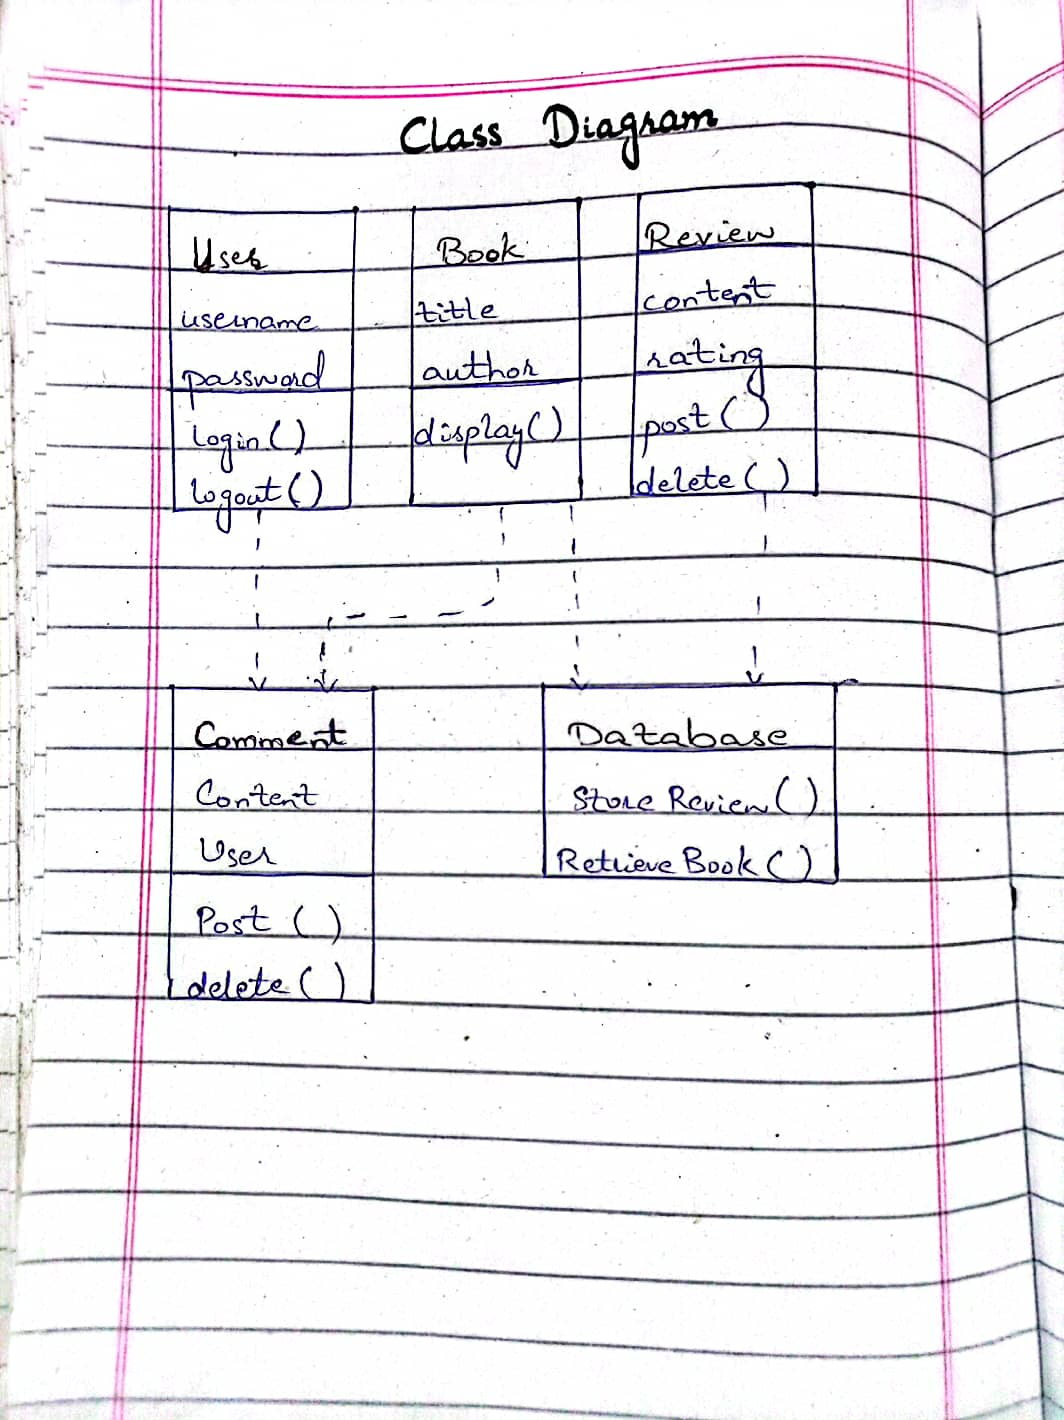 Class Diagram
User
username
password
login()
logout()
Book
title
author
display()
Review
content
rating
post()
delete()
Comment
Content
User
Post ()
delete()
Database
Store Review()
Retrieve Book()